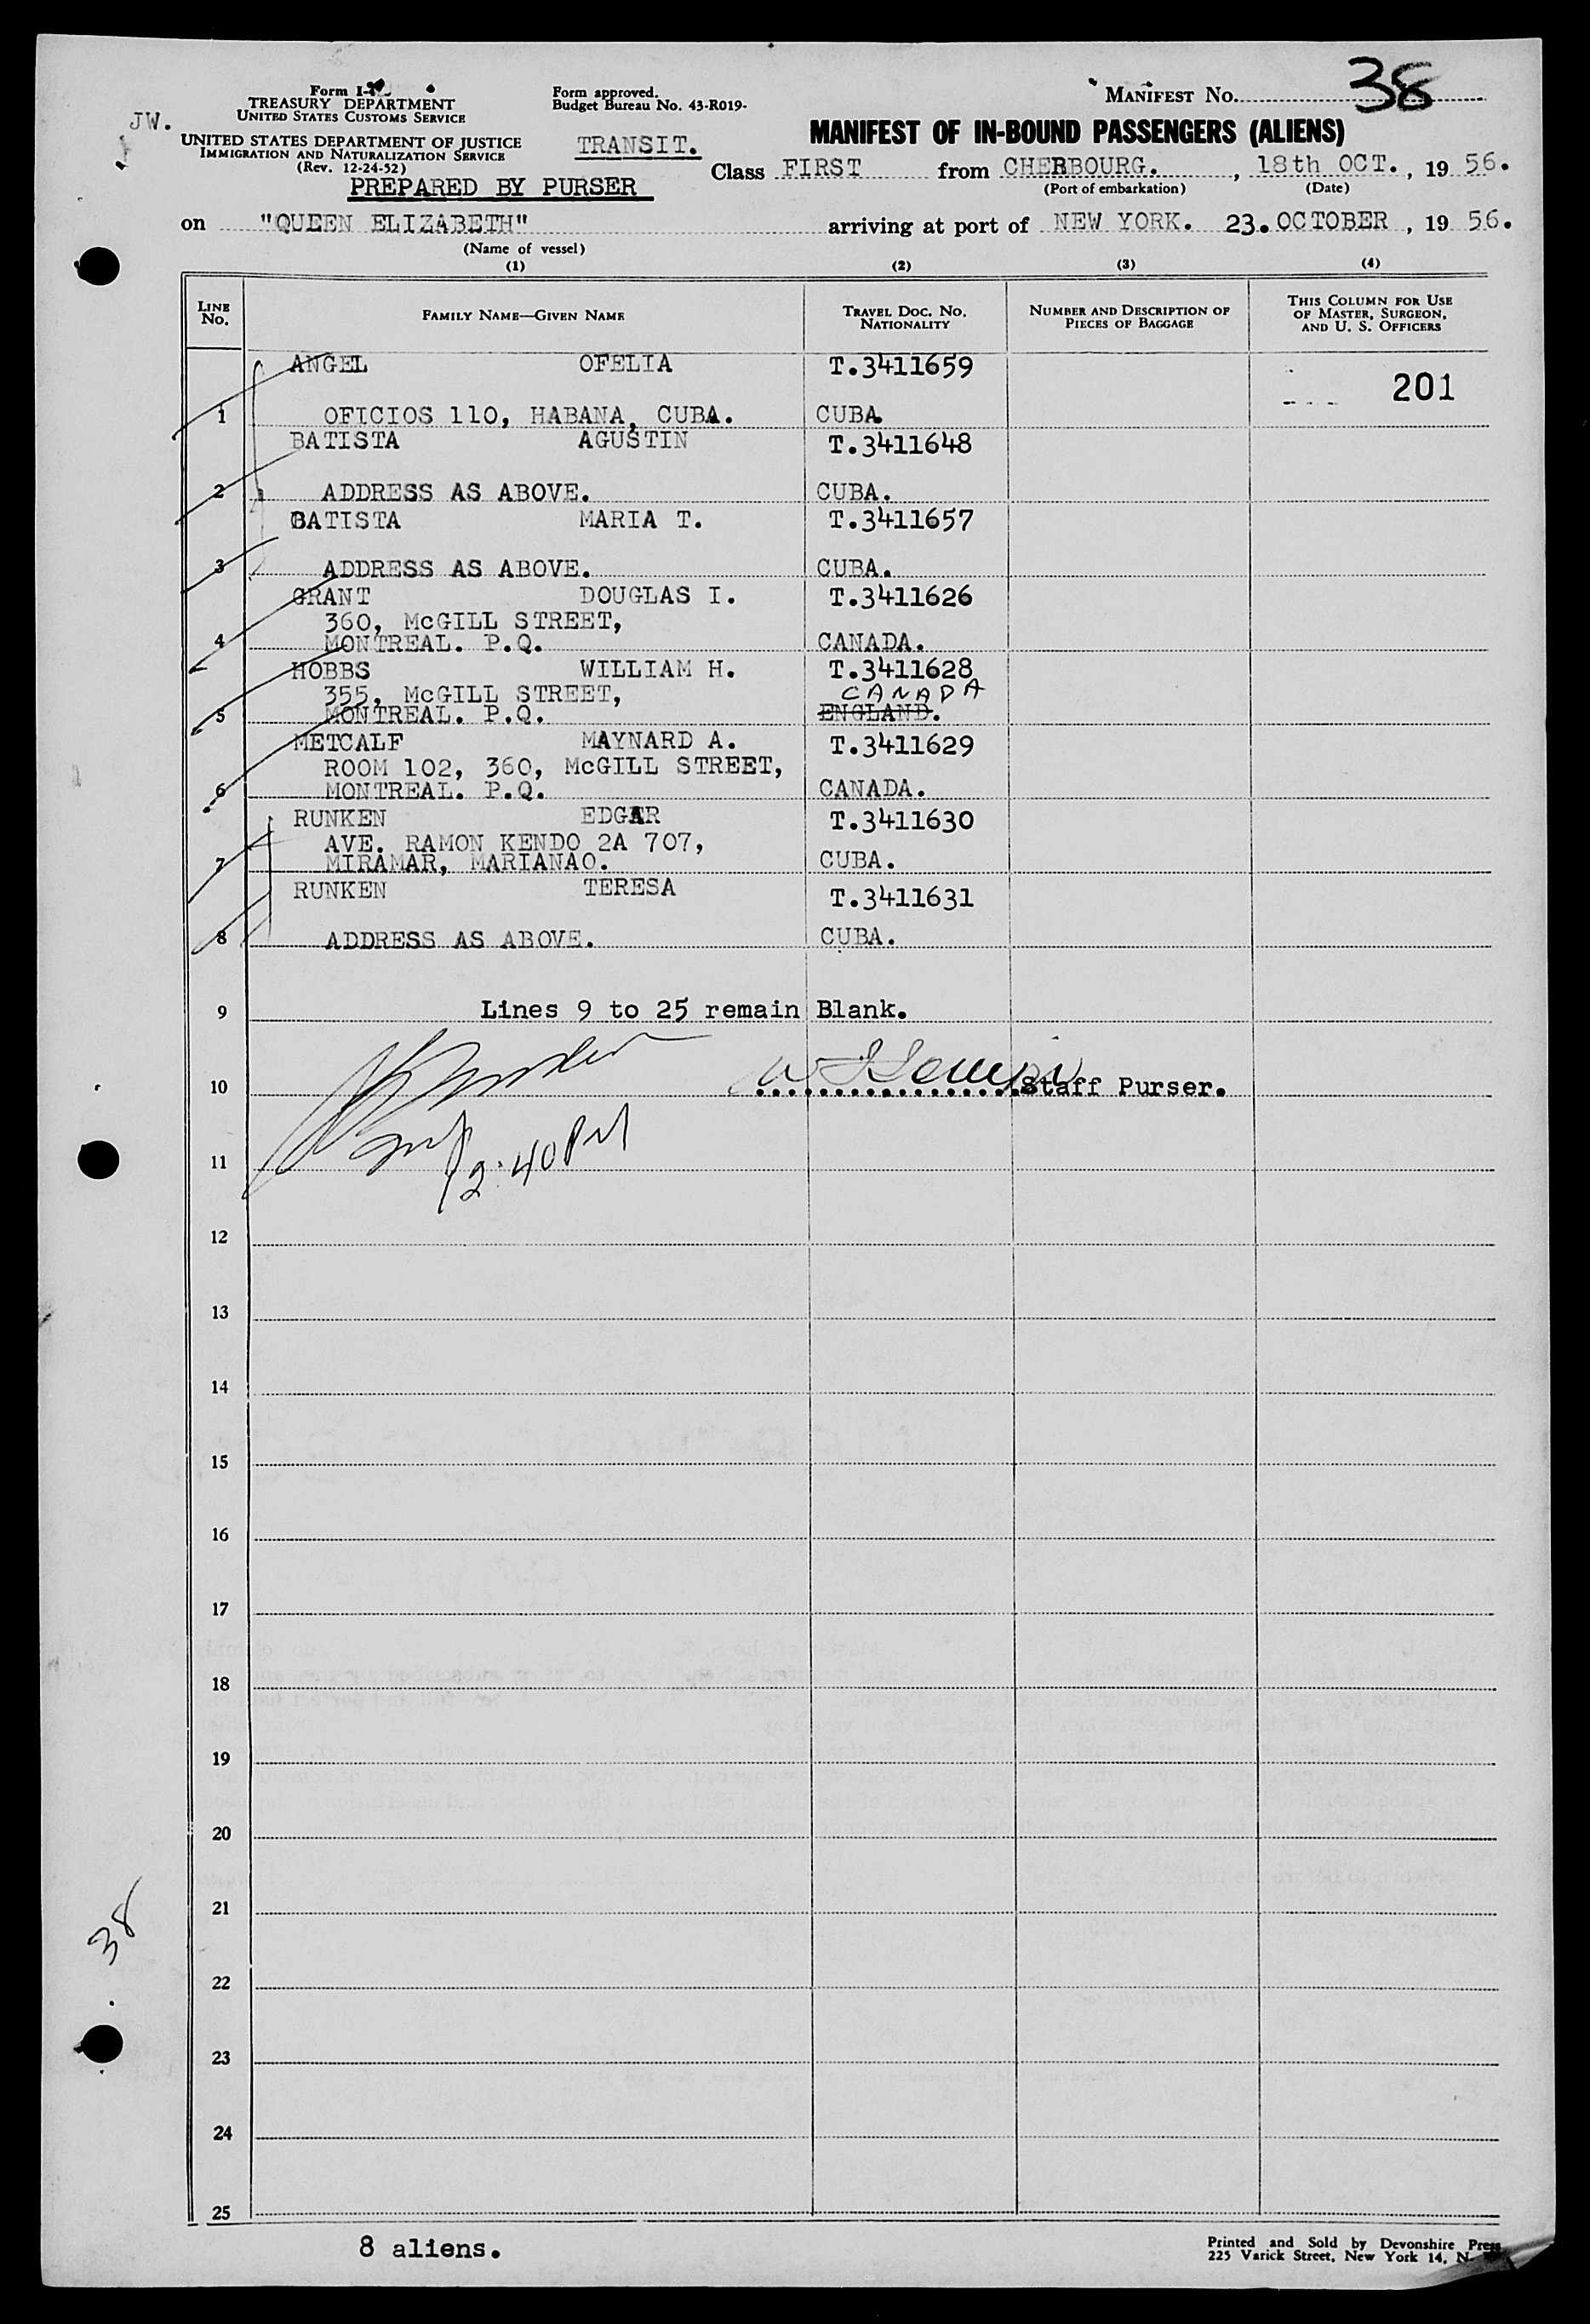 JW.
Form I-
TREASURY DEPARTMENT
UNITED STATES CUSTOMS SERVICE
UNITED STATES DEPARTMENT OF JUSTICE
IMMIGRATION AND NATURALIZATION SERVICE
(Rev. 12-24-52)
PREPARED BY PURSER
Form approved.
Budget Bureau No. 43-R019-
TRANSIT.
MANIFEST NO. 38
MANIFEST OF IN-BOUND PASSENGERS (ALIENS)
Class FIRST from CHERBOURG. , 18th OCT. , 19 56.
(Port of embarkation) (Date)
on "QUEEN ELIZABETH" arriving at port of NEW YORK. 23. OCTOBER , 19 56.
(Name of vessel)
(1) (2) (3) (4)
LINE NO. FAMILY NAME—GIVEN NAME TRAVEL DOC. NO. NATIONALITY NUMBER AND DESCRIPTION OF PIECES OF BAGGAGE THIS COLUMN FOR USE OF MASTER, SURGEON, AND U. S. OFFICERS
ANGEL OFELIA T.3411659
201
1 OFICIOS 110, HABANA, CUBA. CUBA
BATISTA AGUSTIN T.3411648
2 ADDRESS AS ABOVE. CUBA.
BATISTA MARIA T. T.3411657
3 ADDRESS AS ABOVE. CUBA.
GRANT DOUGLAS I. T.3411626
360, McGILL STREET,
4 MONTREAL. P.Q. CANADA.
HOBBS WILLIAM H. T.3411628
355, McGILL STREET, CANADA
5 MONTREAL. P.Q. ENGLAND.
METCALF MAYNARD A. T.3411629
ROOM 102, 360, McGILL STREET,
6 MONTREAL. P.Q. CANADA.
RUNKEN EDGAR T.3411630
AVE. RAMON KENDO 2A 707,
7 MIRAMAR, MARIANAO. CUBA.
RUNKEN TERESA T.3411631
8 ADDRESS AS ABOVE. CUBA.
9 Lines 9 to 25 remain Blank.
10 Staff Purser.
11
2:40 PM
12
13
14
15
16
17
18
19
20
21
38
22
23
24
25
8 aliens.
Printed and Sold by Devonshire Press
225 Varick Street, New York 14, N.